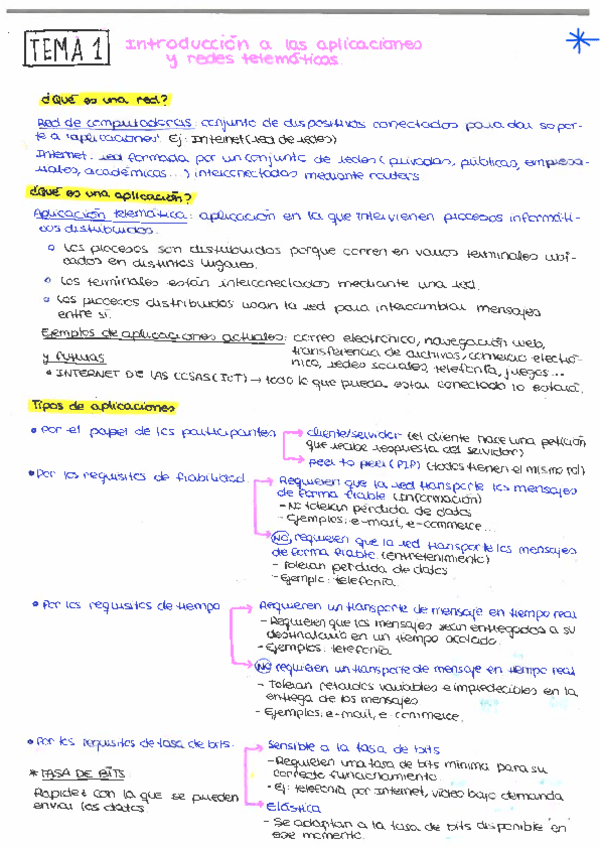 TEMA 1
Introducción a las aplicaciones
y redes telemáticas.
¿Qué es una red?
Red de computadoras: conjunto de dispositivos conectados para dar sopor-
te a "aplicaciones". Ej: Internet (red de redes)
Internet: red formada por un conjunto de redes (privadas, públicas, empresa-
riales, académicas...) interconectadas mediante routers
¿Qué es una aplicación?
Aplicación telemática: aplicación en la que intervienen procesos informáti-
cos distribuidos.
Los procesos son distribuidos porque corren en varios terminales ubi-
cados en distintos lugares.
Los terminales están interconectados mediante una red.
Los procesos distribuidos usan la red para intercambiar mensajes
entre sí.
Ejemplos de aplicaciones actuales: correo electrónico, navegación web,
transferencia de archivos, comercio electró-
y futuras
nico, redes sociales, telefonía, juegos...
• INTERNET DE LAS COSAS (IoT) → todo lo que pueda estar conectado lo estará.
Tipos de aplicaciones
• Por el papel de los participantes
cliente/servidor (el cliente hace una petición
que recibe respuesta del servidor)
peer to peer (P2P) (todos tienen el mismo rol)
• Por los requisitos de fiabilidad
Requieren que la red transporte los mensajes
de forma fiable (información)
- No toleran pérdida de datos
- Ejemplos: e-mail, e-commerce...
NO, requieren que la red transporte los mensajes
de forma fiable (entretenimiento)
- Toleran perdida de datos
- Ejemplo: telefonía.
• Por los requisitos de tiempo
Requieren un transporte de mensaje en tiempo real
- Requieren que los mensajes sean entregados a su
destinatario en un tiempo acotado.
- Ejemplos: telefonía
NO requieren un transporte de mensaje en tiempo real
- Toleran retardos variables e impredecibles en la
entrega de los mensajes.
- Ejemplos: e-mail, e-commerce.
• Por los requisitos de tasa de bits.
Sensible a la tasa de bits
- Requieren una tasa de bits mínima para su
correcto funcionamiento.
- Ej: telefonía por Internet, vídeo bajo demanda
* TASA DE BITS
Rapidez con la que se pueden
enviar los datos.
elástica
- Se adaptan a la tasa de bits disponible en
ese momento.